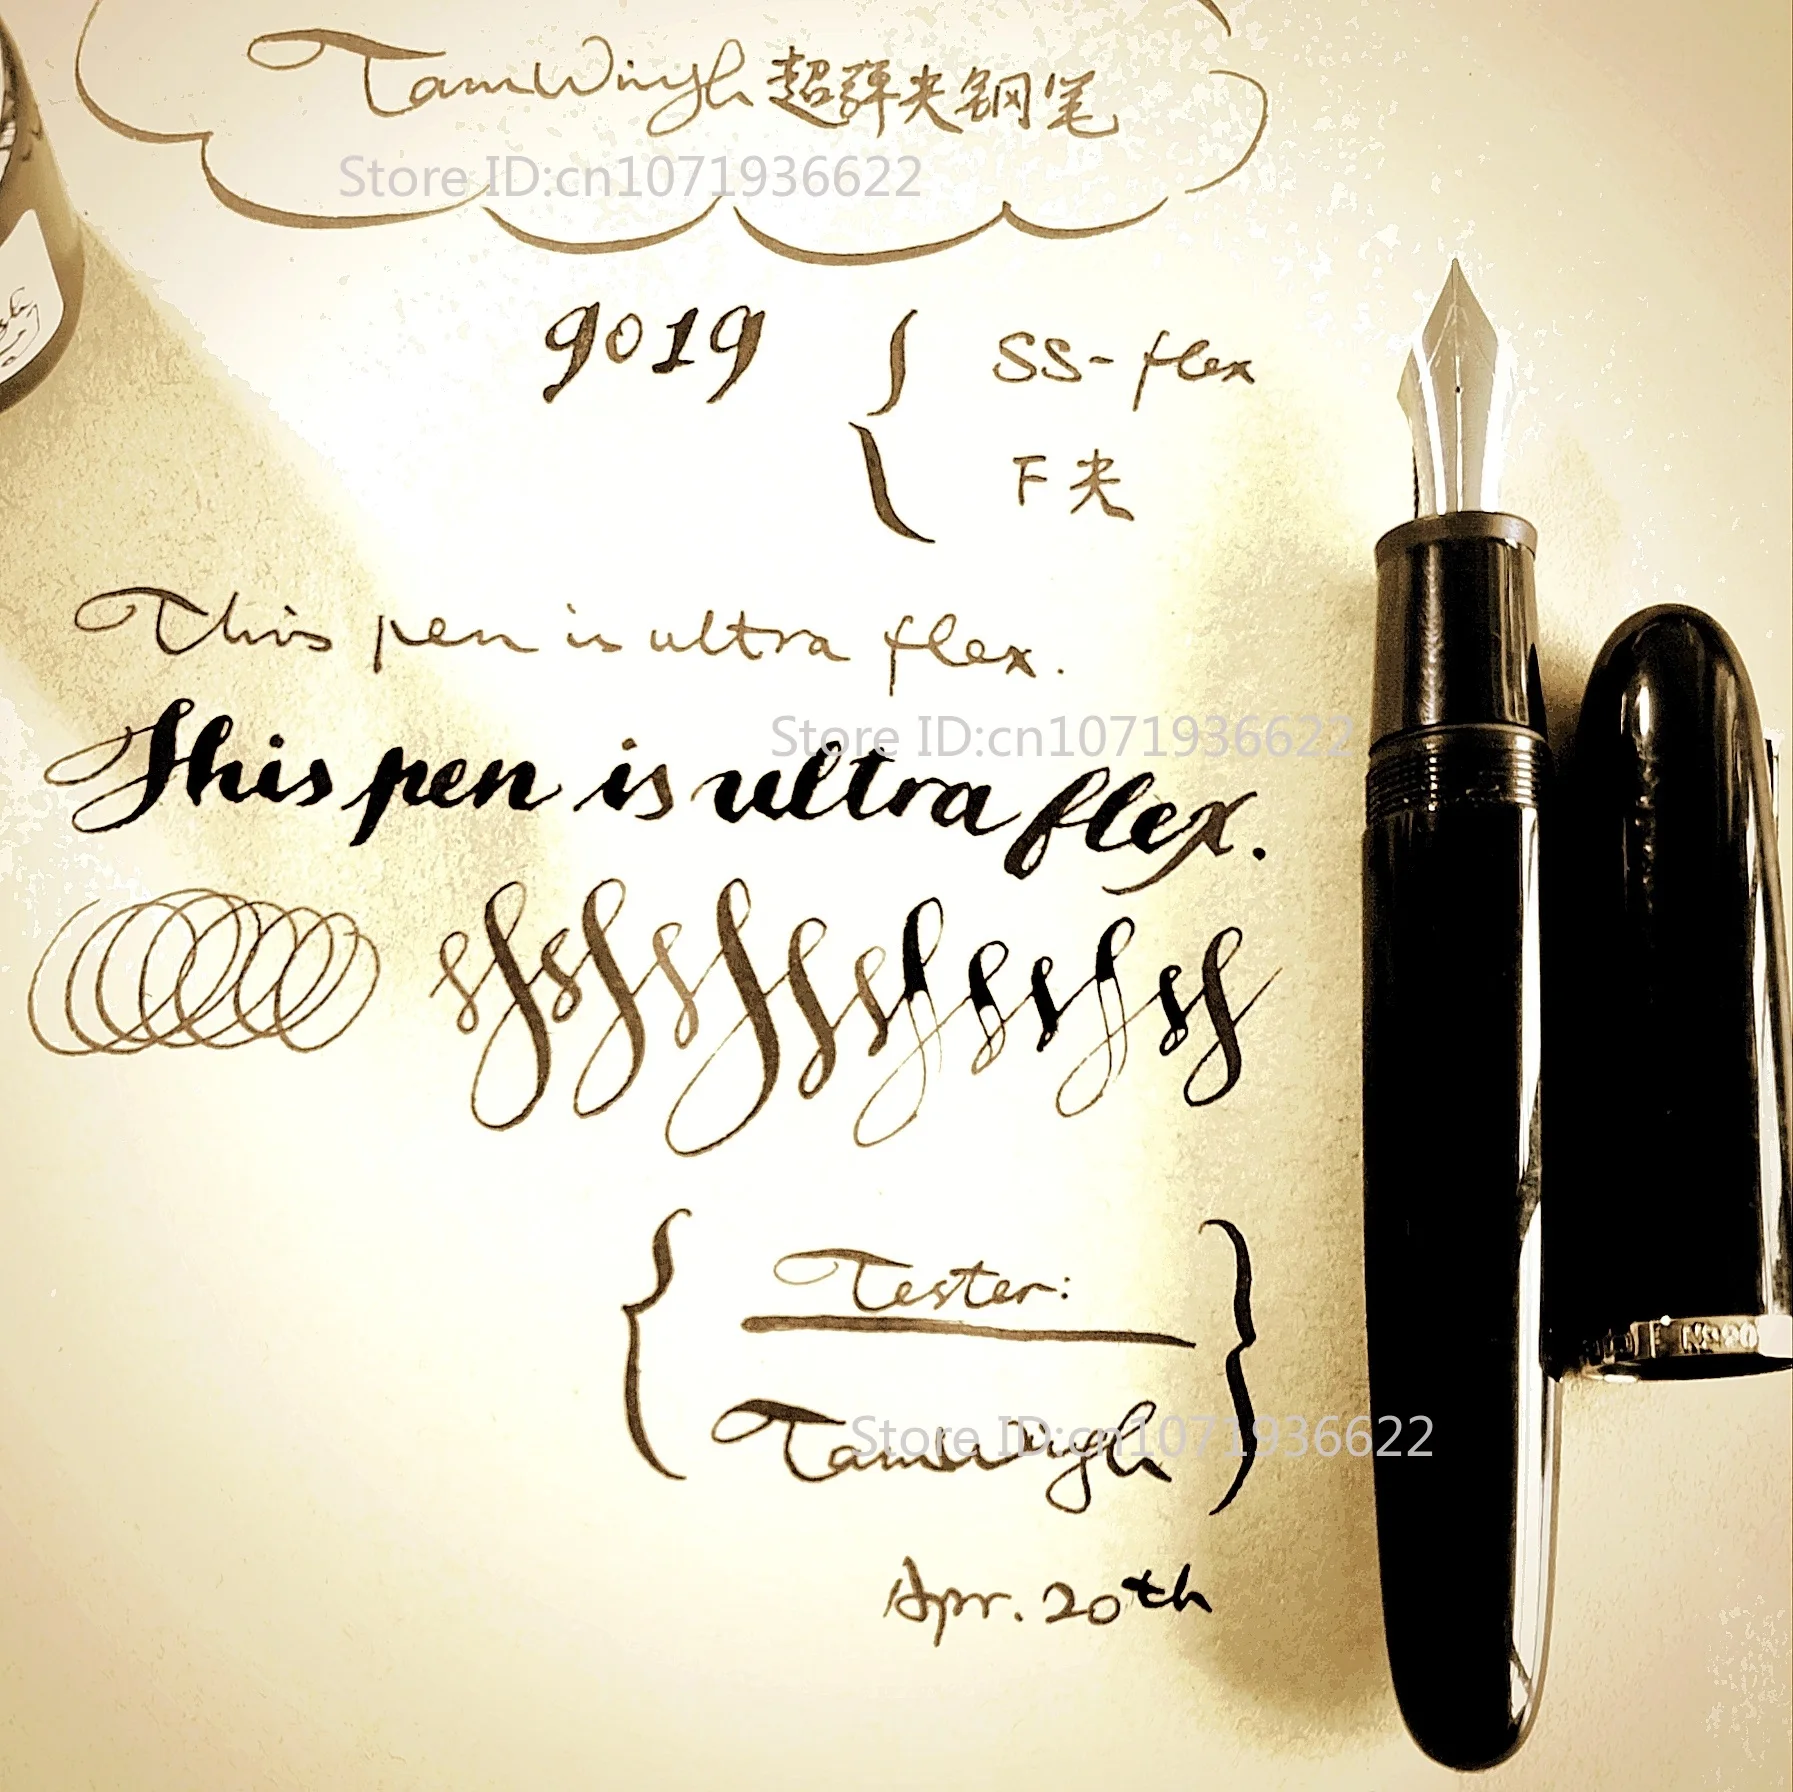 TamWingh超弹尖钢笔
Store ID:cn1071936622
9019
SS-flex
F尖
This pen is ultra flex.
Store ID:cn1071936622
This pen is ultra flex.
Tester:
TamWingh
Store ID:cn1071936622
Apr. 20th